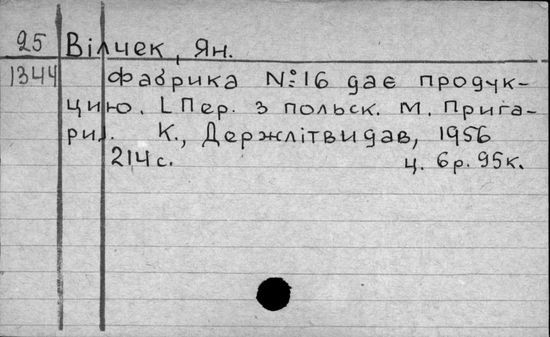 25 Вілчек, Ян.
1344 Фабрика №16 дає продук-
цію. [Пер. з польск. М. Прига-
ри]. К., Держлітвидав, 1956
214с. ц. 6р. 95к.